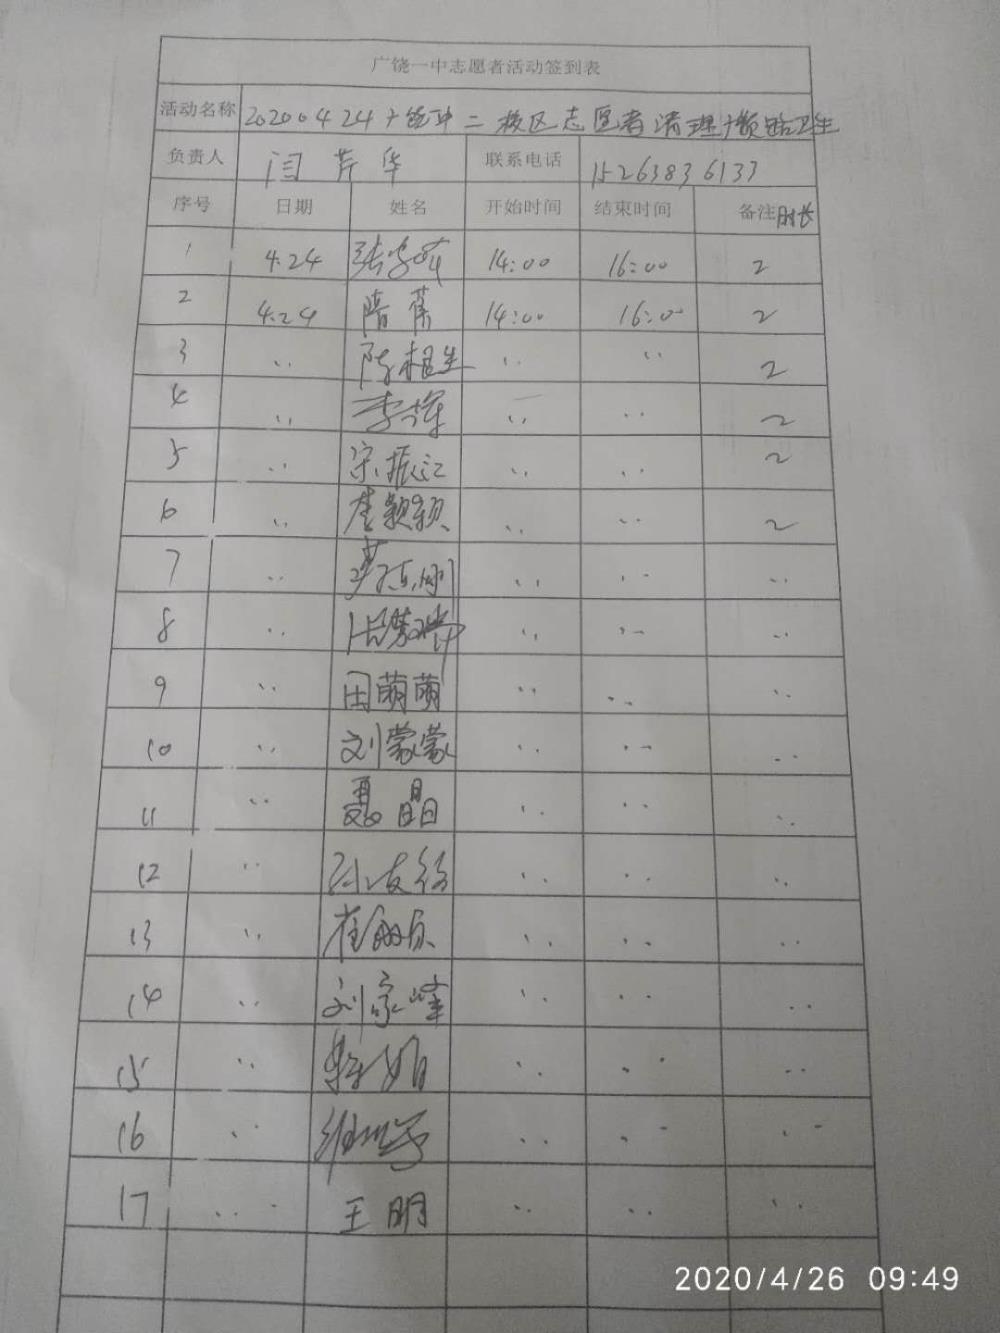 广饶一中志愿者活动签到表
活动名称 20200424广饶一中二校区志愿者清理 路卫生
负责人 闫芹华 联系电话 15263836133
序号 日期 姓名 开始时间 结束时间 备注时长
1 4.24 14:00 16:00 2
2 4.24 隋 14:00 16:00 2
3 〃 陈相生 〃 〃 2
4 〃 李 〃 〃 2
5 〃 宋振江 〃 〃 2
6 〃 崔颖颖 〃 〃 2
7 〃 〃 〃 〃
8 〃 〃 〃 〃
9 〃 田萌萌 〃 〃 〃
10 〃 刘蒙蒙 〃 〃 〃
11 〃 聂晶 〃 〃 〃
12 〃 孙友 〃 〃 〃
13 〃 崔 〃 〃 〃
14 〃 刘家峰 〃 〃 〃
15 〃 娟 〃 〃 〃
16 〃 〃 〃 〃
17 〃 王明 〃 〃 〃
2020/4/26 09:49